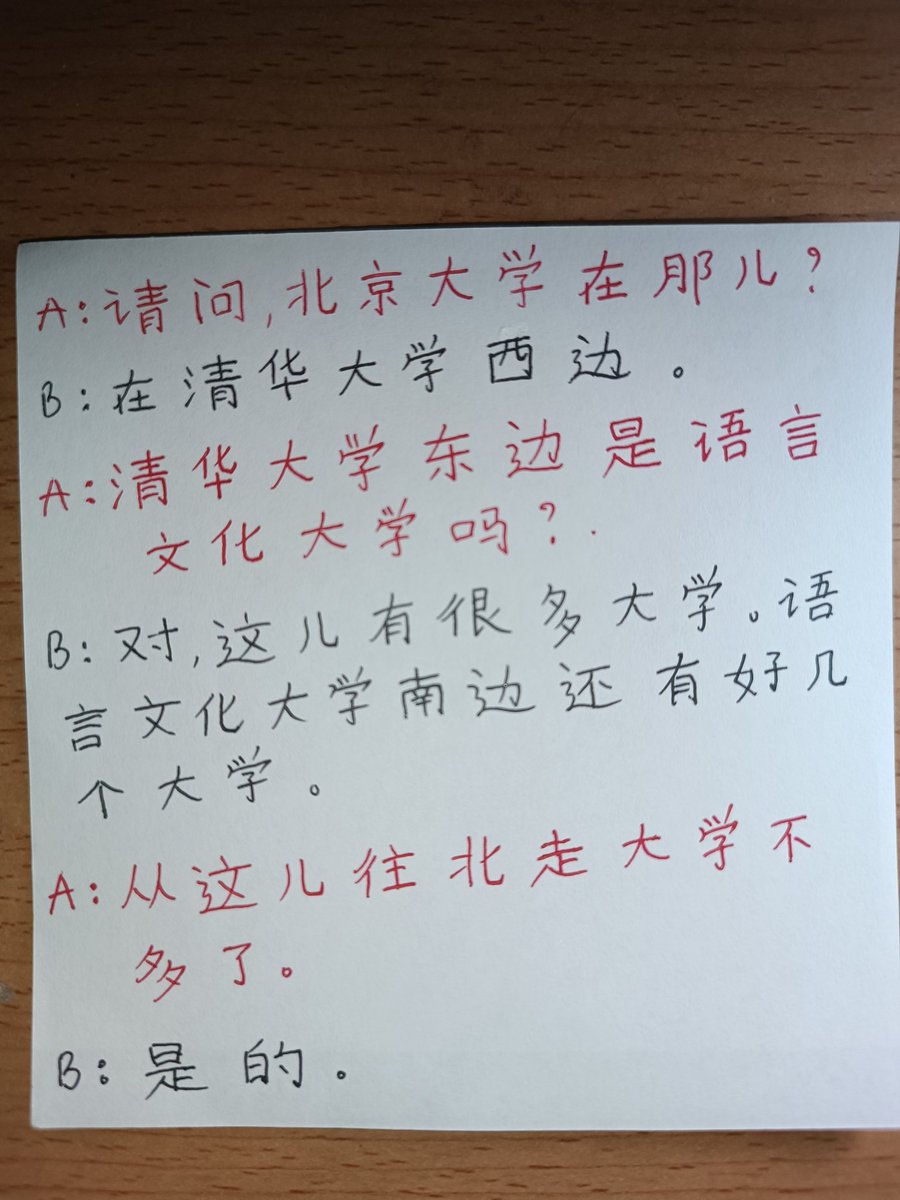 A:请问,北京大学在那儿?
B:在清华大学西边。
A:清华大学东边是语言
文化大学吗?.
B:对,这儿有很多大学。语
言文化大学南边还有好几
个大学。
A:从这儿往北走大学不
多了。
B:是的.